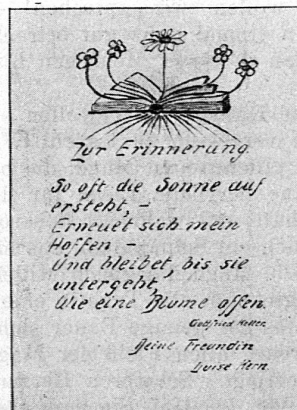 Zur Erinnerung.
So oft die Sonne auf
ersteht, –
Erneuet sich mein
Hoffen –
Und bleibet, bis sie
untergeht,
Wie eine Blume offen.
Gottfried Keller
Deine Freundin
Luise Kern.